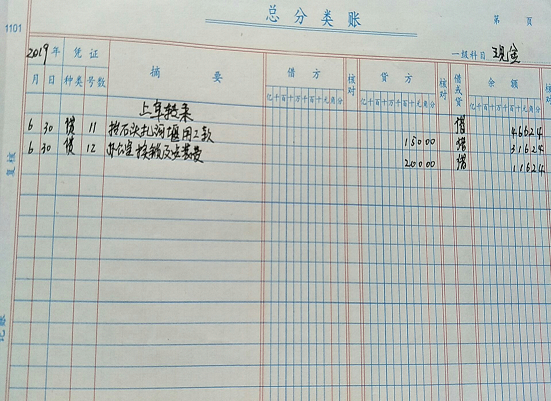 1101
总分类账
第 页
一级科目 现金
2019年 凭证 摘要 借方 核对 贷方 核对 借或贷 余额 核对
月 日 种类 号数 亿千百十万千百十元角分 亿千百十万千百十元角分 亿千百十万千百十元角分
上年转来 借 46624
6 30 贷 11 石 河堰用工款 15000 借 31624
6 30 贷 12 办公室 及安装费 20000 借 11624
复核
记账